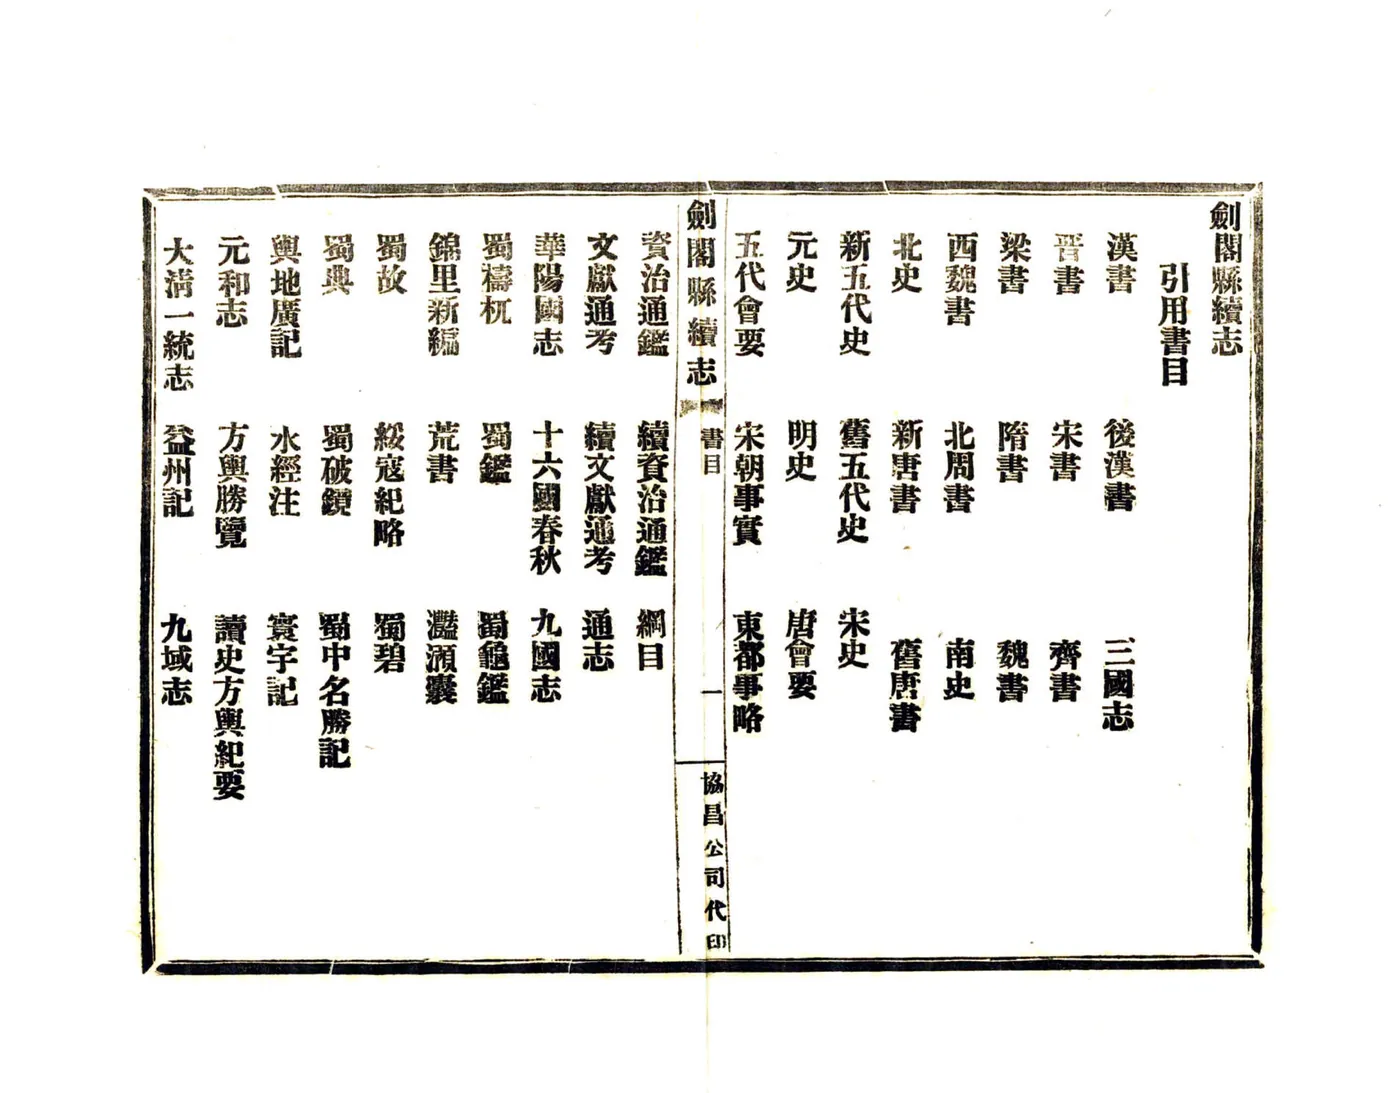 劍閣縣續志
引用書目
漢書 後漢書 三國志
晋書 宋書 齊書
梁書 隋書 魏書
西魏書 北周書 南史
北史 新唐書 舊唐書
新五代史 舊五代史 宋史
元史 明史 唐會要
五代會要 宋朝事實 東都事略
劍閣縣續志 書目 一 協昌公司代印
資治通鑑 續資治通鑑 綱目
文獻通考 續文獻通考 通志
華陽國志 十六國春秋 九國志
蜀檮杌 蜀鑑 蜀龜鑑
錦里新編 荒書 灩澦囊
蜀故 綏寇紀略 蜀碧
蜀典 蜀破鏡 蜀中名勝記
輿地廣記 水經注 寰宇記
元和志 方輿勝覽 讀史方輿紀要
大淸一統志 益州記 九域志